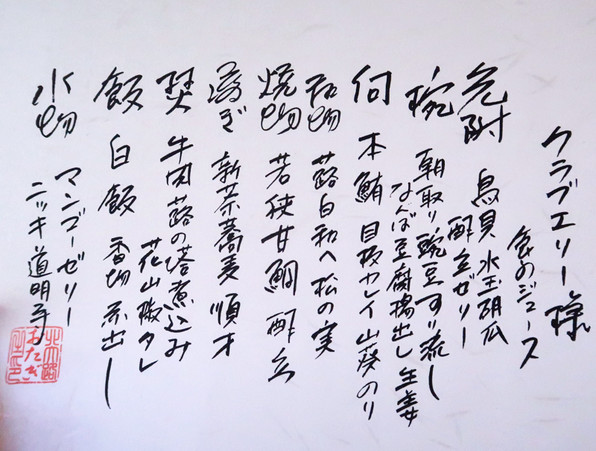 クラブエリー様
食のジュース
先附 鳥貝 水玉胡瓜
酢立ゼリー
椀 朝取り豌豆すり流し
なんば豆腐揚出し生姜
向 本鮪 目板カレイ 山葵 のり
和物 蕗白和へ松の実
焼物 若狭甘鯛 酢立
凌ぎ 新茶蕎麦 順才
焚 牛肉蕗の塔煮込み
花山椒タレ
飯 白飯 香物 赤出し
水物 マンゴーゼリー
ニッキ道明寺
おたぎ